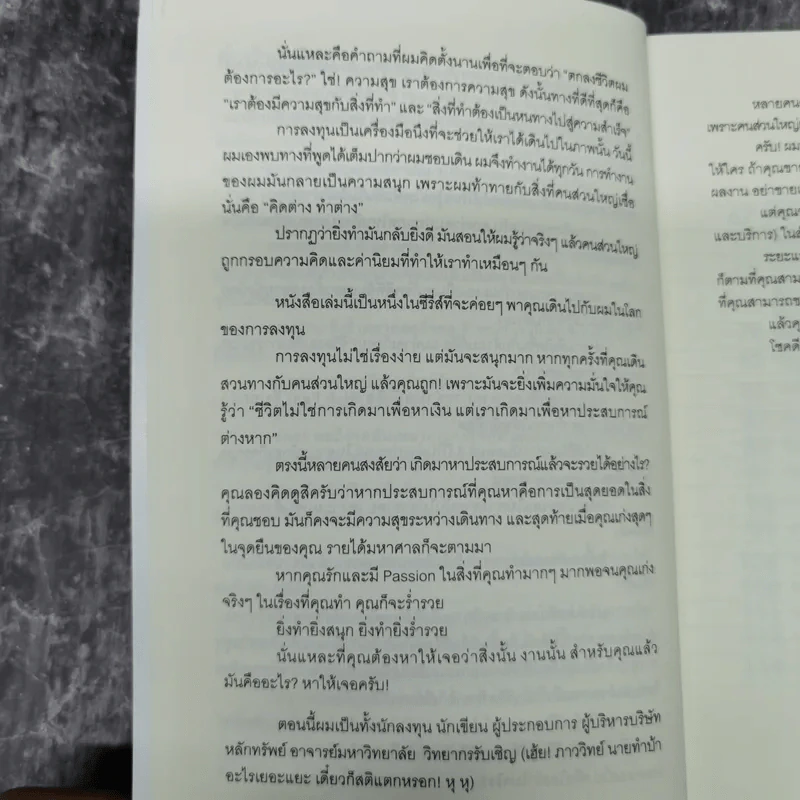 นั่นแหละคือคำถามที่ผมคิดตั้งนานเพื่อที่จะตอบว่า “ตกลงชีวิตผม
ต้องการอะไร?” ใช่! ความสุข เราต้องการความสุข ดังนั้นทางที่ดีที่สุดก็คือ
“เราต้องมีความสุขกับสิ่งที่ทำ” และ “สิ่งที่ทำต้องเป็นหนทางไปสู่ความสำเร็จ”
การลงทุนเป็นเครื่องมือนึงที่จะช่วยให้เราได้เดินไปในภาพนั้น วันนี้
ผมเองพบทางที่พูดได้เต็มปากว่าผมชอบเดิน ผมจึงทำงานได้ทุกวัน การทำงาน
ของผมมันกลายเป็นความสนุก เพราะผมท้าทายกับสิ่งที่คนส่วนใหญ่เชื่อ
นั่นคือ “คิดต่าง ทำต่าง”
ปรากฏว่ายิ่งทำมันกลับยิ่งดี มันสอนให้ผมรู้ว่าจริงๆ แล้วคนส่วนใหญ่
ถูกกรอบความคิดและค่านิยมที่ทำให้เราทำเหมือนๆ กัน
หนังสือเล่มนี้เป็นหนึ่งในซีรี่ส์ที่จะค่อยๆ พาคุณเดินไปกับผมในโลก
ของการลงทุน
การลงทุนไม่ใช่เรื่องง่าย แต่มันจะสนุกมาก หากทุกครั้งที่คุณเดิน
สวนทางกับคนส่วนใหญ่ แล้วคุณถูก! เพราะมันจะยิ่งเพิ่มความมั่นใจให้คุณ
รู้ว่า “ชีวิตไม่ใช่การเกิดมาเพื่อหาเงิน แต่เราเกิดมาเพื่อหาประสบการณ์
ต่างหาก”
ตรงนี้หลายคนสงสัยว่า เกิดมาหาประสบการณ์แล้วจะรวยได้อย่างไร?
คุณลองคิดดูสิครับว่าหากประสบการณ์ที่คุณหาคือการเป็นสุดยอดในสิ่ง
ที่คุณชอบ มันก็คงจะมีความสุขระหว่างเดินทาง และสุดท้ายเมื่อคุณเก่งสุดๆ
ในจุดยืนของคุณ รายได้มหาศาลก็จะตามมา
หากคุณรักและมี Passion ในสิ่งที่คุณทำมากๆ มากพอจนคุณเก่ง
จริงๆ ในเรื่องที่คุณทำ คุณก็จะร่ำรวย
ยิ่งทำยิ่งสนุก ยิ่งทำยิ่งร่ำรวย
นั่นแหละที่คุณต้องหาให้เจอว่าสิ่งนั้น งานนั้น สำหรับคุณแล้ว
มันคืออะไร? หาให้เจอครับ!
ตอนนี้ผมเป็นทั้งนักลงทุน นักเขียน ผู้ประกอบการ ผู้บริหารบริษัท
หลักทรัพย์ อาจารย์มหาวิทยาลัย วิทยากรรับเชิญ (เฮ้ย! ภาววิทย์ นายทำบ้า
อะไรเยอะแยะ เดี๋ยวก็สติแตกหรอก! หุ หุ)
หลายคน
เพราะคนส่วนใหญ่
ครับ! ผม
ให้ใคร ถ้าคุณขาย
ผลงาน อย่าขาย
แต่คุณ
และบริการ) ในส
ระยะแ
ก็ตามที่คุณสาม
ที่คุณสามารถข
แล้วคุ
โชคดี